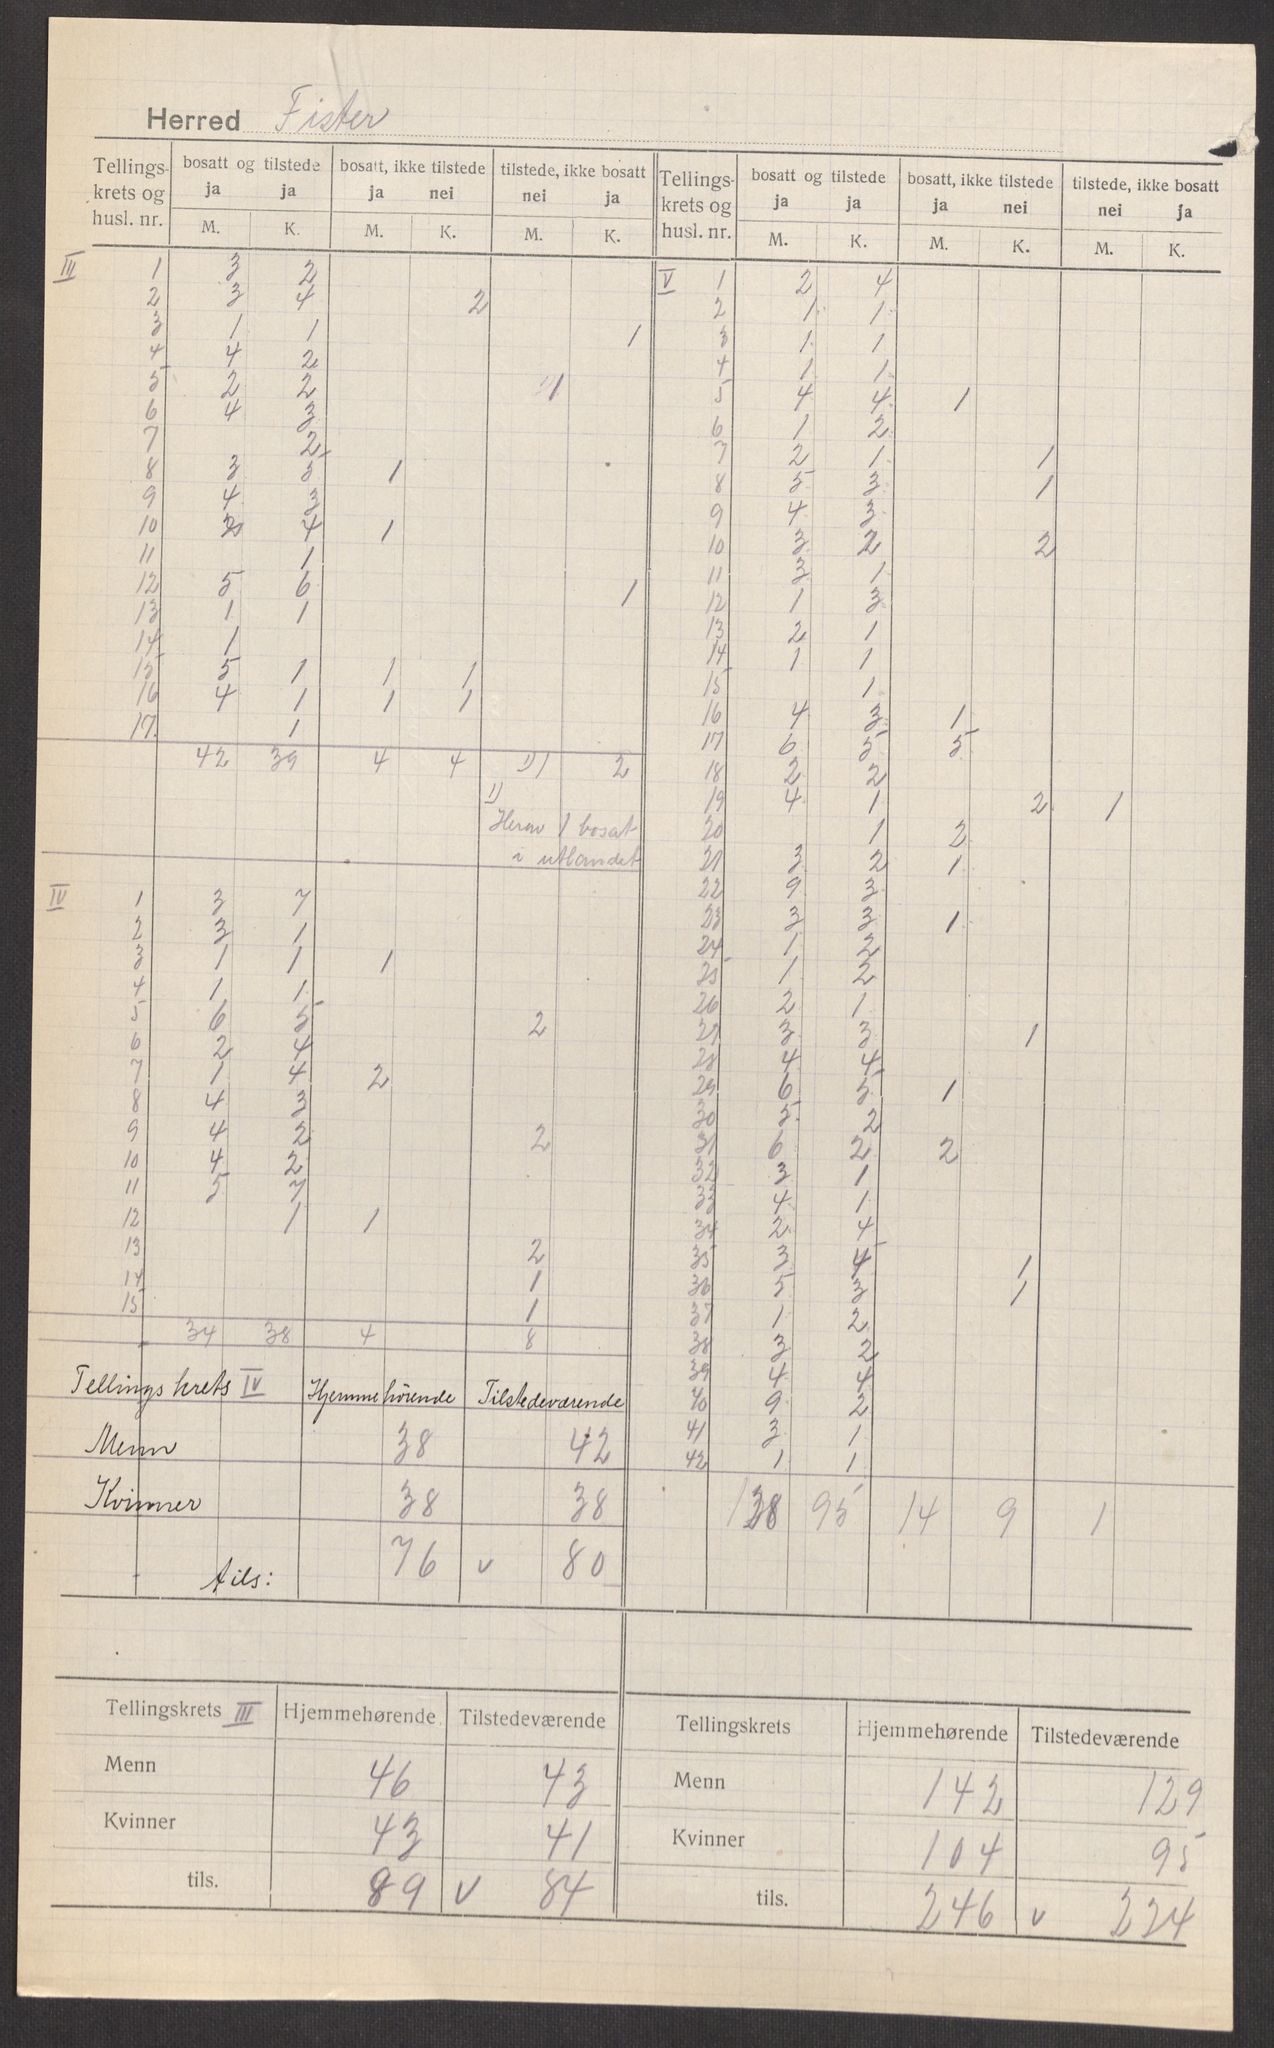 Herred Fister
Tellings- krets og husl. nr. | bosatt og tilstede ja ja M. K. | bosatt, ikke tilstede ja nei M. K. | tilstede, ikke bosatt nei ja M. K.
III 1 3 2
2 3 4 2
3 1 1 1
4 4 2
5 2 2 1) 1
6 4 3
7 2
8 3 5 1
9 4 3
10 2 4 1
11 1
12 5 6 1
13 1 1
14 1
15 5 1 1 1
16 4 1 1 1
17. 1
42 39 4 4 1) 1 2
1)
Herav 1 bosat
i utlandet
IV 1 3 7
2 3 1
3 1 1 1
4 1 1
5 6 5 2
6 2 4
7 1 4 2
8 4 3
9 4 2 2
10 4 2
11 5 7
12 1 1
13 2
14 1
15 1
34 38 4 8
Tellingskrets IV Hjemmehörende Tilstedeværende
Menn 38 42
Kvinner 38 38
tils: 76 v 80
Tellings- krets og husl. nr. | bosatt og tilstede ja ja M. K. | bosatt, ikke tilstede ja nei M. K. | tilstede, ikke bosatt nei ja M. K.
V 1 2 4
2 1 1
3 1 1
4 1 1
5 4 4 1
6 1 2
7 2 1 1
8 5 3 1
9 4 3
10 3 2 2
11 3 1
12 1 3
13 2 1
14 1 1
15 1
16 4 3 1
17 6 5 5
18 2 2
19 4 1 2 1
20 1 2
21 3 2 1
22 9 3
23 3 3 1
24 1 2
25 1 2
26 2 1
27 3 3 1
28 4 4
29 6 5 1
30 5 2
31 6 2 2
32 3 1
33 4 1
34 2 4
35 3 4 1
36 5 3 1
37 1 2
38 3 2
39 4 4
40 9 2
41 3 1
42 1 1
138 95 14 9 1
Tellingskrets III Hjemmehørende Tilstedeværende
Menn 46 43
Kvinner 43 41
tils. 89 v 84
Tellingskrets Hjemmehørende Tilstedeværende
Menn 142 129
Kvinner 104 95
tils. 246 v 224